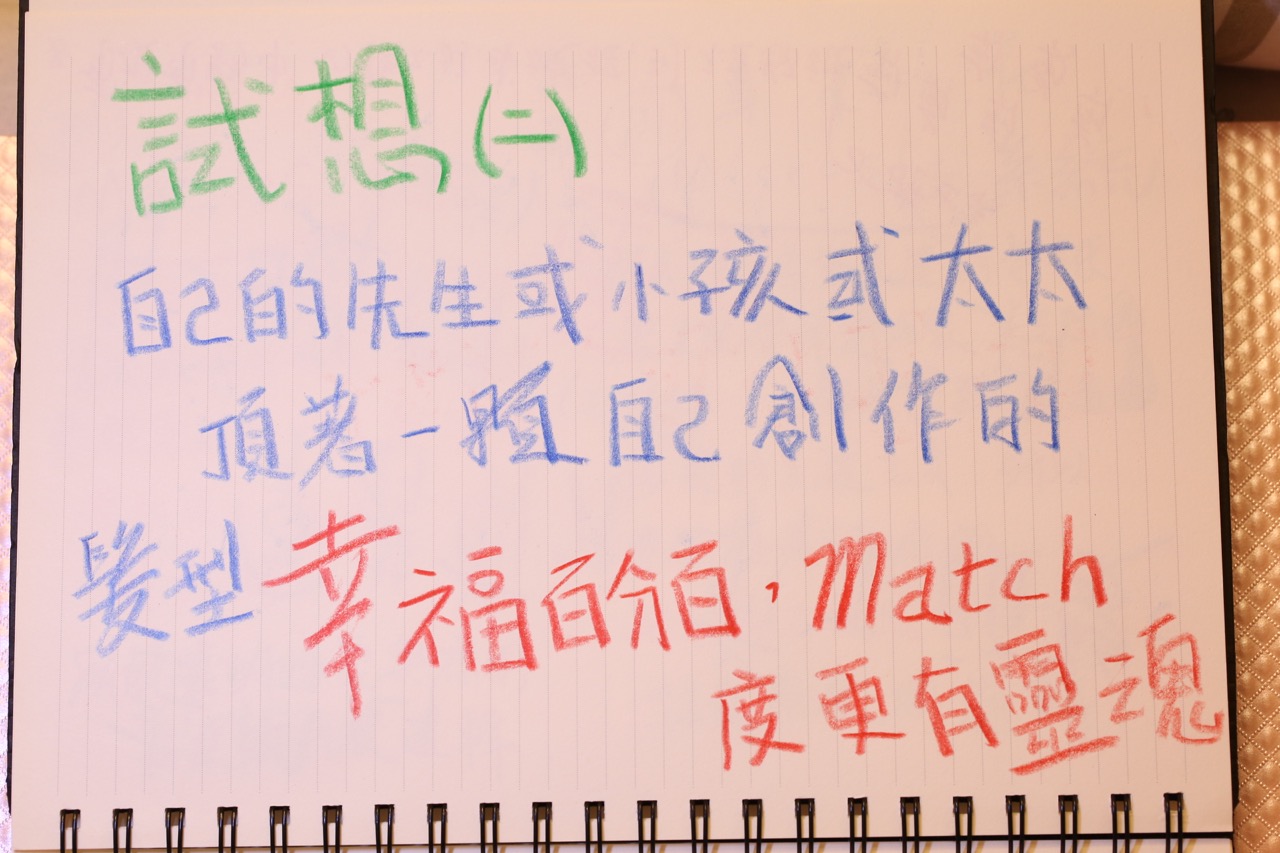 試想(二)
自己的先生或小孩或太太
頂著一顆自己創作的
髮型幸福百分百,match
度更有靈魂